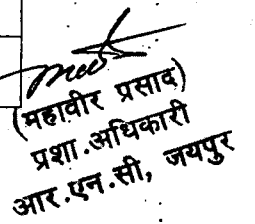 (महावीर प्रसाद)
प्रशा.अधिकारी
आर.एन.सी, जयपुर